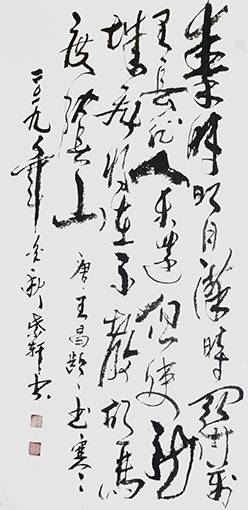 秦時明月漢時關萬
里長征人未還但使龍
城飛將在不教胡馬
度陰山 唐王昌齡出塞
二〇一九年 紫軒書